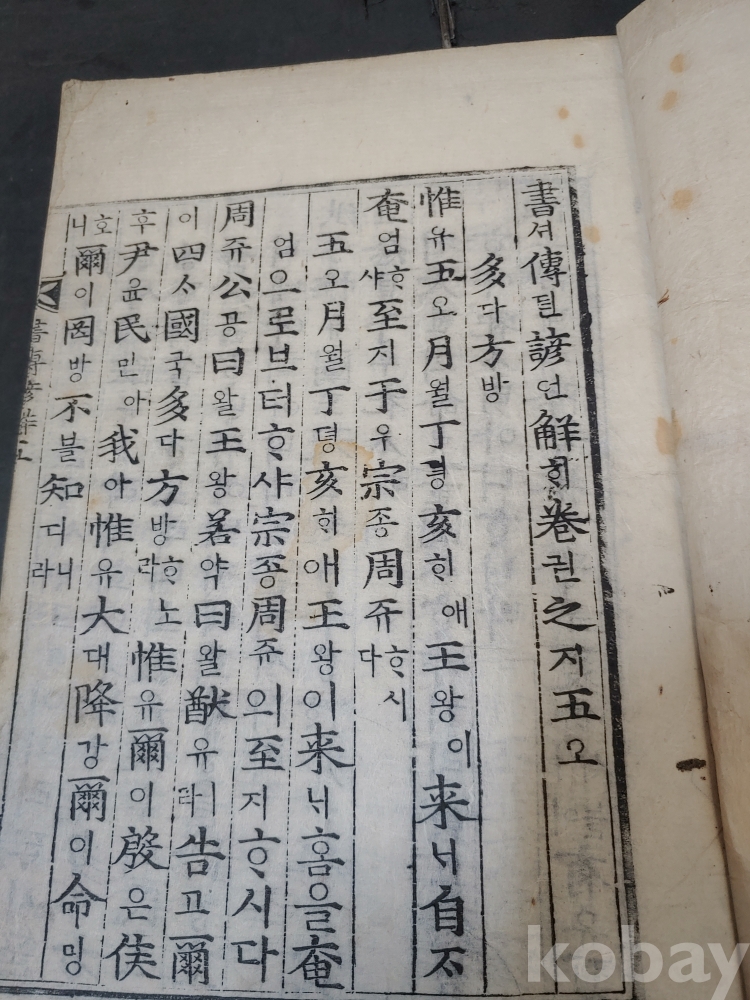 書셔傳뎐諺언解ᄒᆡ卷권之지五오
多다方방
惟유五오月월丁뎡亥ᄒᆡ애王왕이来ᄂᆡ自ᄌᆞ
奄엄ᄒᆞ샤至지于우宗종周쥬ᄒᆞ시다
五오月월丁뎡亥ᄒᆡ애王왕이来ᄂᆡ홈을奄
엄으로브터ᄒᆞ샤宗종周쥬의至지ᄒᆞ시다
周쥬公공曰왈王왕若약曰왈猷유ㅣ라告고爾
이四ᄉᆞ國국多다方방ᄒᆞ노라惟유爾이殷은侯
후尹윤民민아我아惟유大대降강爾이命밍
호니爾이罔방不블知디니라
書傳諺解五
kobay